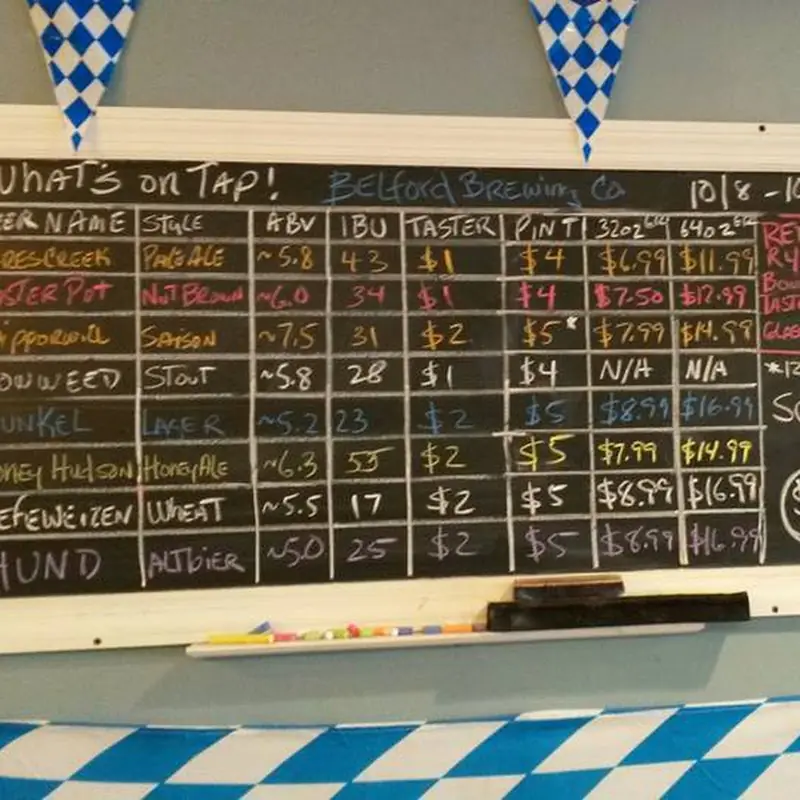 WHAT'S ON TAP! BELFORD BREWING CO 10/8 - 10
ER NAME STYLE ABV IBU TASTER PINT 32OZ 64OZ
RESCREEK PALE ALE ~5.8 43 $1 $4 $6.99 $11.99
STER POT NUT BROWN ~6.0 34 $1 $4 $7.50 $12.99
IPPORWILL SAISON ~7.5 31 $2 $5* $7.99 $14.99
OWWEED STOUT ~5.8 28 $1 $4 N/A N/A
UNKEL LAGER ~5.2 23 $2 $5 $8.99 $16.99
ONEY HUDSON HONEY ALE ~6.3 55 $2 $5 $7.99 $14.99
EFEWEIZEN WHEAT ~5.5 17 $2 $5 $8.99 $16.99
HUND ALTBIER ~5.0 25 $2 $5 $8.99 $16.99
*12